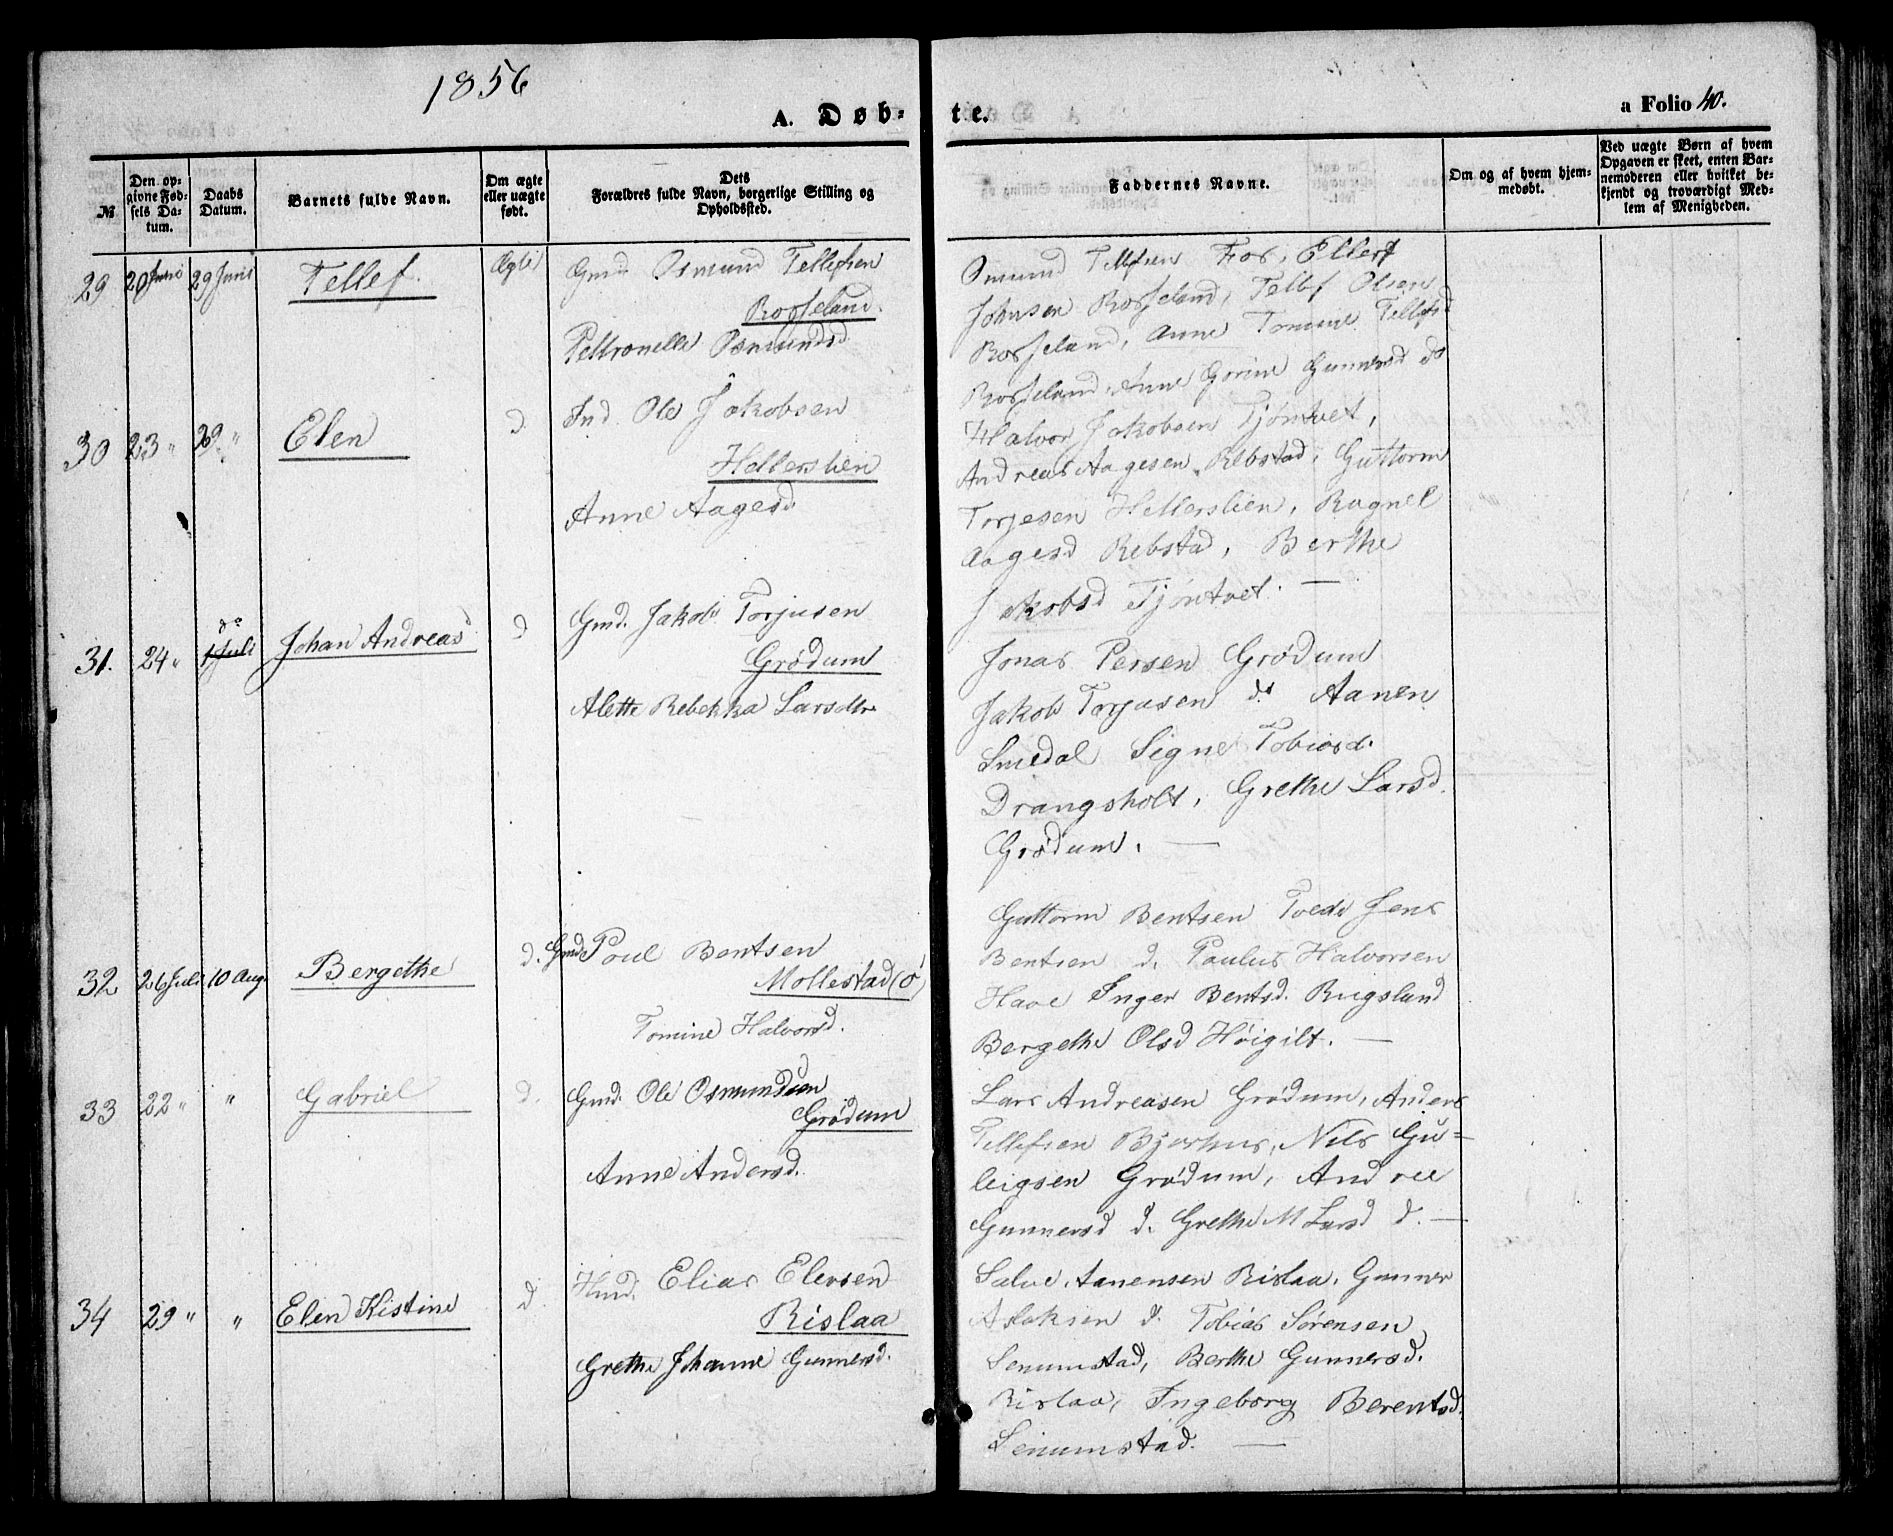 1856
A. Døb-
te.
a Folio 40.
№
Den op-
givne Fød-
sels Da-
tum.
Daabs
Datum.
Barnets fulde Navn.
Om ægte
eller uægte
født.
Dets
Forældres fulde Navn, borgerlige Stilling og
Opholdssted.
Faddernes Navne.
Om og af hvem hjem-
medøbt.
Ved uægte Børn af hvem
Opgaven er skeet, enten Bar-
nemoderen eller hvilket be-
kjendt og troværdigt Med-
lem af Menigheden.
29 20 Juni 29 Juni Tellef Ægte
Gmd. Osmund Tellefsen
Rosseland.
Peltronelle Osmundsd
Osmund Tellefsen Fos, Ellert
Johnsen Rosseland, Tellef Olsen
Rosseland, Anne Tomine Tellefsd
Rosseland, Anne Gorine Gunnersd ds
30 23 " 29 " Elen d
Ind. Ole Jakobsen
Hellerslien
Anne Aagesd
Halvor Jakobsen Tjøntvet,
Andreas Aagesen Rebstad, Guttorm
Torjesen Hellerslien, Ragnel
Aagesd Rebstad, Berthe
Jakobsd Tjøntvet. —
31. 24 " 1 Juli Johan Andreas d
Gmd. Jakob Torjusen
Grødum
Alette Rebekka Larsdtr
Jonas Persen Grødum
Jakob Torjusen ds Aanen
Smedal Signe Tobiasd.
Drangsholt, Grethe Larsd.
Grødum. —
32 26 Juli 10 Aug. Bergethe d.
Gmd. Poul Bentsen
Mollestad (ø)
Tomine Halvorsd.
Guttorm Bentsen Tvede Jens
Bentsen d. Paulus Halvorsen
Have Inger Bentsd. Rugsland
Bergethe Olsd Høigilt. —
33 22 " " Gabriel d.
Gmd. Ole Osmundsen
Grødum
Anne Andersd.
Lars Andreasen Grødum, Anders
Tellefsen Bjorhus, Nils Gu=
leigsen Grødum, Andree
Gunnersd d. Grethe M Larsd d. —
34 29 " " Elen Kistine d.
Hmd. Elias Elevsen
Rislaa
Grethe Johanne Gunnersd.
Salve Aanensen Rislaa, Gunner
Aslaksen d. Tobias Sørensen
Senumstad, Berthe Gunnersd.
Rislaa, Ingeborg Berentsd.
Senumstad. —